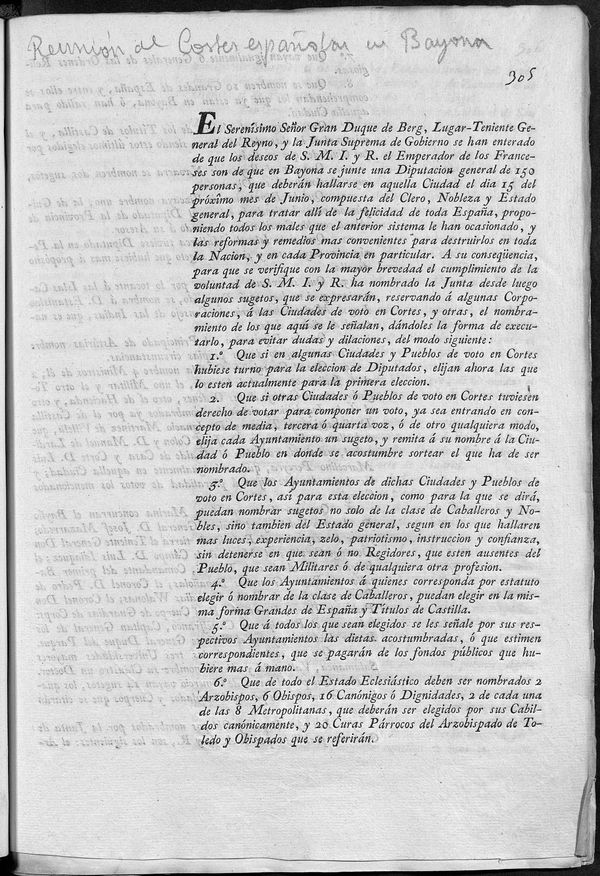 Reunión de Cortes españolas en Bayona
305
El Serenísimo Señor Gran Duque de Berg, Lugar-Teniente Ge-
neral del Reyno, y la Junta Suprema de Gobierno se han enterado
de que los deseos de S. M. I. y R. el Emperador de los France-
ses son de que en Bayona se junte una Diputacion general de 150
personas, que deberán hallarse en aquella Ciudad el dia 15 del
próxîmo mes de Junio, compuesta del Clero, Nobleza y Estado
general, para tratar allí de la felicidad de toda España, propo-
niendo todos los males que el anterior sistema le han ocasionado, y
las reformas y remedios mas convenientes para destruirlos en toda
la Nacion, y en cada Provincia en particular. A su conseqüencia,
para que se verifique con la mayor brevedad el cumplimiento de la
voluntad de S. M. I. y R. ha nombrado la Junta desde luego
algunos sugetos, que se expresarán, reservando á algunas Corpo-
raciones, á las Ciudades de voto en Cortes, y otras, el nombra-
miento de los que aquí se le señalan, dándoles la forma de execu-
tarlo, para evitar dudas y dilaciones, del modo siguiente:
1.º Que si en algunas Ciudades y Pueblos de voto en Cortes
hubiese turno para la eleccion de Diputados, elijan ahora las que
lo esten actualmente para la primera eleccion.
2. Que si otras Ciudades ó Pueblos de voto en Cortes tuviesen
derecho de votar para componer un voto, ya sea entrando en con-
cepto de media, tercera ó quarta voz, ó de otro qualquiera modo,
elija cada Ayuntamiento un sugeto, y remita á su nombre á la Ciu-
dad ó Pueblo en donde se acostumbre sortear el que ha de ser
nombrado.
3.º Que los Ayuntamientos de dichas Ciudades y Pueblos de
voto en Cortes, así para esta eleccion, como para la que se dirá,
puedan nombrar sugetos no solo de la clase de Caballeros y No-
bles, sino tambien del Estado general, segun en los que hallaren
mas luces, experiencia, zelo, patriotismo, instruccion y confianza,
sin detenerse en que sean ó no Regidores, que esten ausentes del
Pueblo, que sean Militares ó de qualquiera otra profesion.
4.º Que los Ayuntamientos á quienes corresponda por estatuto
elegir ó nombrar de la clase de Caballeros, puedan elegir en la mis-
ma forma Grandes de España y Títulos de Castilla.
5.º Que á todos los que sean elegidos se les señale por sus res-
pectivos Ayuntamientos las dietas acostumbradas, ó que estimen
correspondientes, que se pagarán de los fondos públicos que hu-
biere mas á mano.
6.º Que de todo el Estado Eclesiástico deben ser nombrados 2
Arzobispos, 6 Obispos, 16 Canónigos ó Dignidades, 2 de cada una
de las 8 Metropolitanas, que deberán ser elegidos por sus Cabil-
dos canónicamente, y 20 Curas Párrocos del Arzobispado de To-
ledo y Obispados que se referirán.